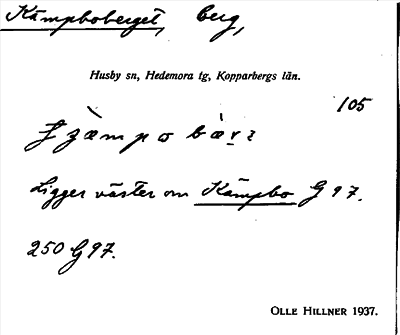 Kämpboberget, berg,
Husby sn, Hedemora tg, Kopparbergs län.
105
Ligger väster om Kämpbo G 97.
250 G 97.
OLLE HILLNER 1937.